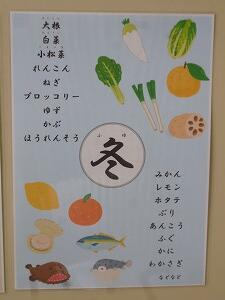 大根
白菜
小松菜
れんこん
ねぎ
ブロッコリー
ゆず
かぶ
ほうれんそう
ふゆ
冬
みかん
レモン
ホタテ
ぶり
あんこう
ふぐ
かに
わかさぎ
などなど